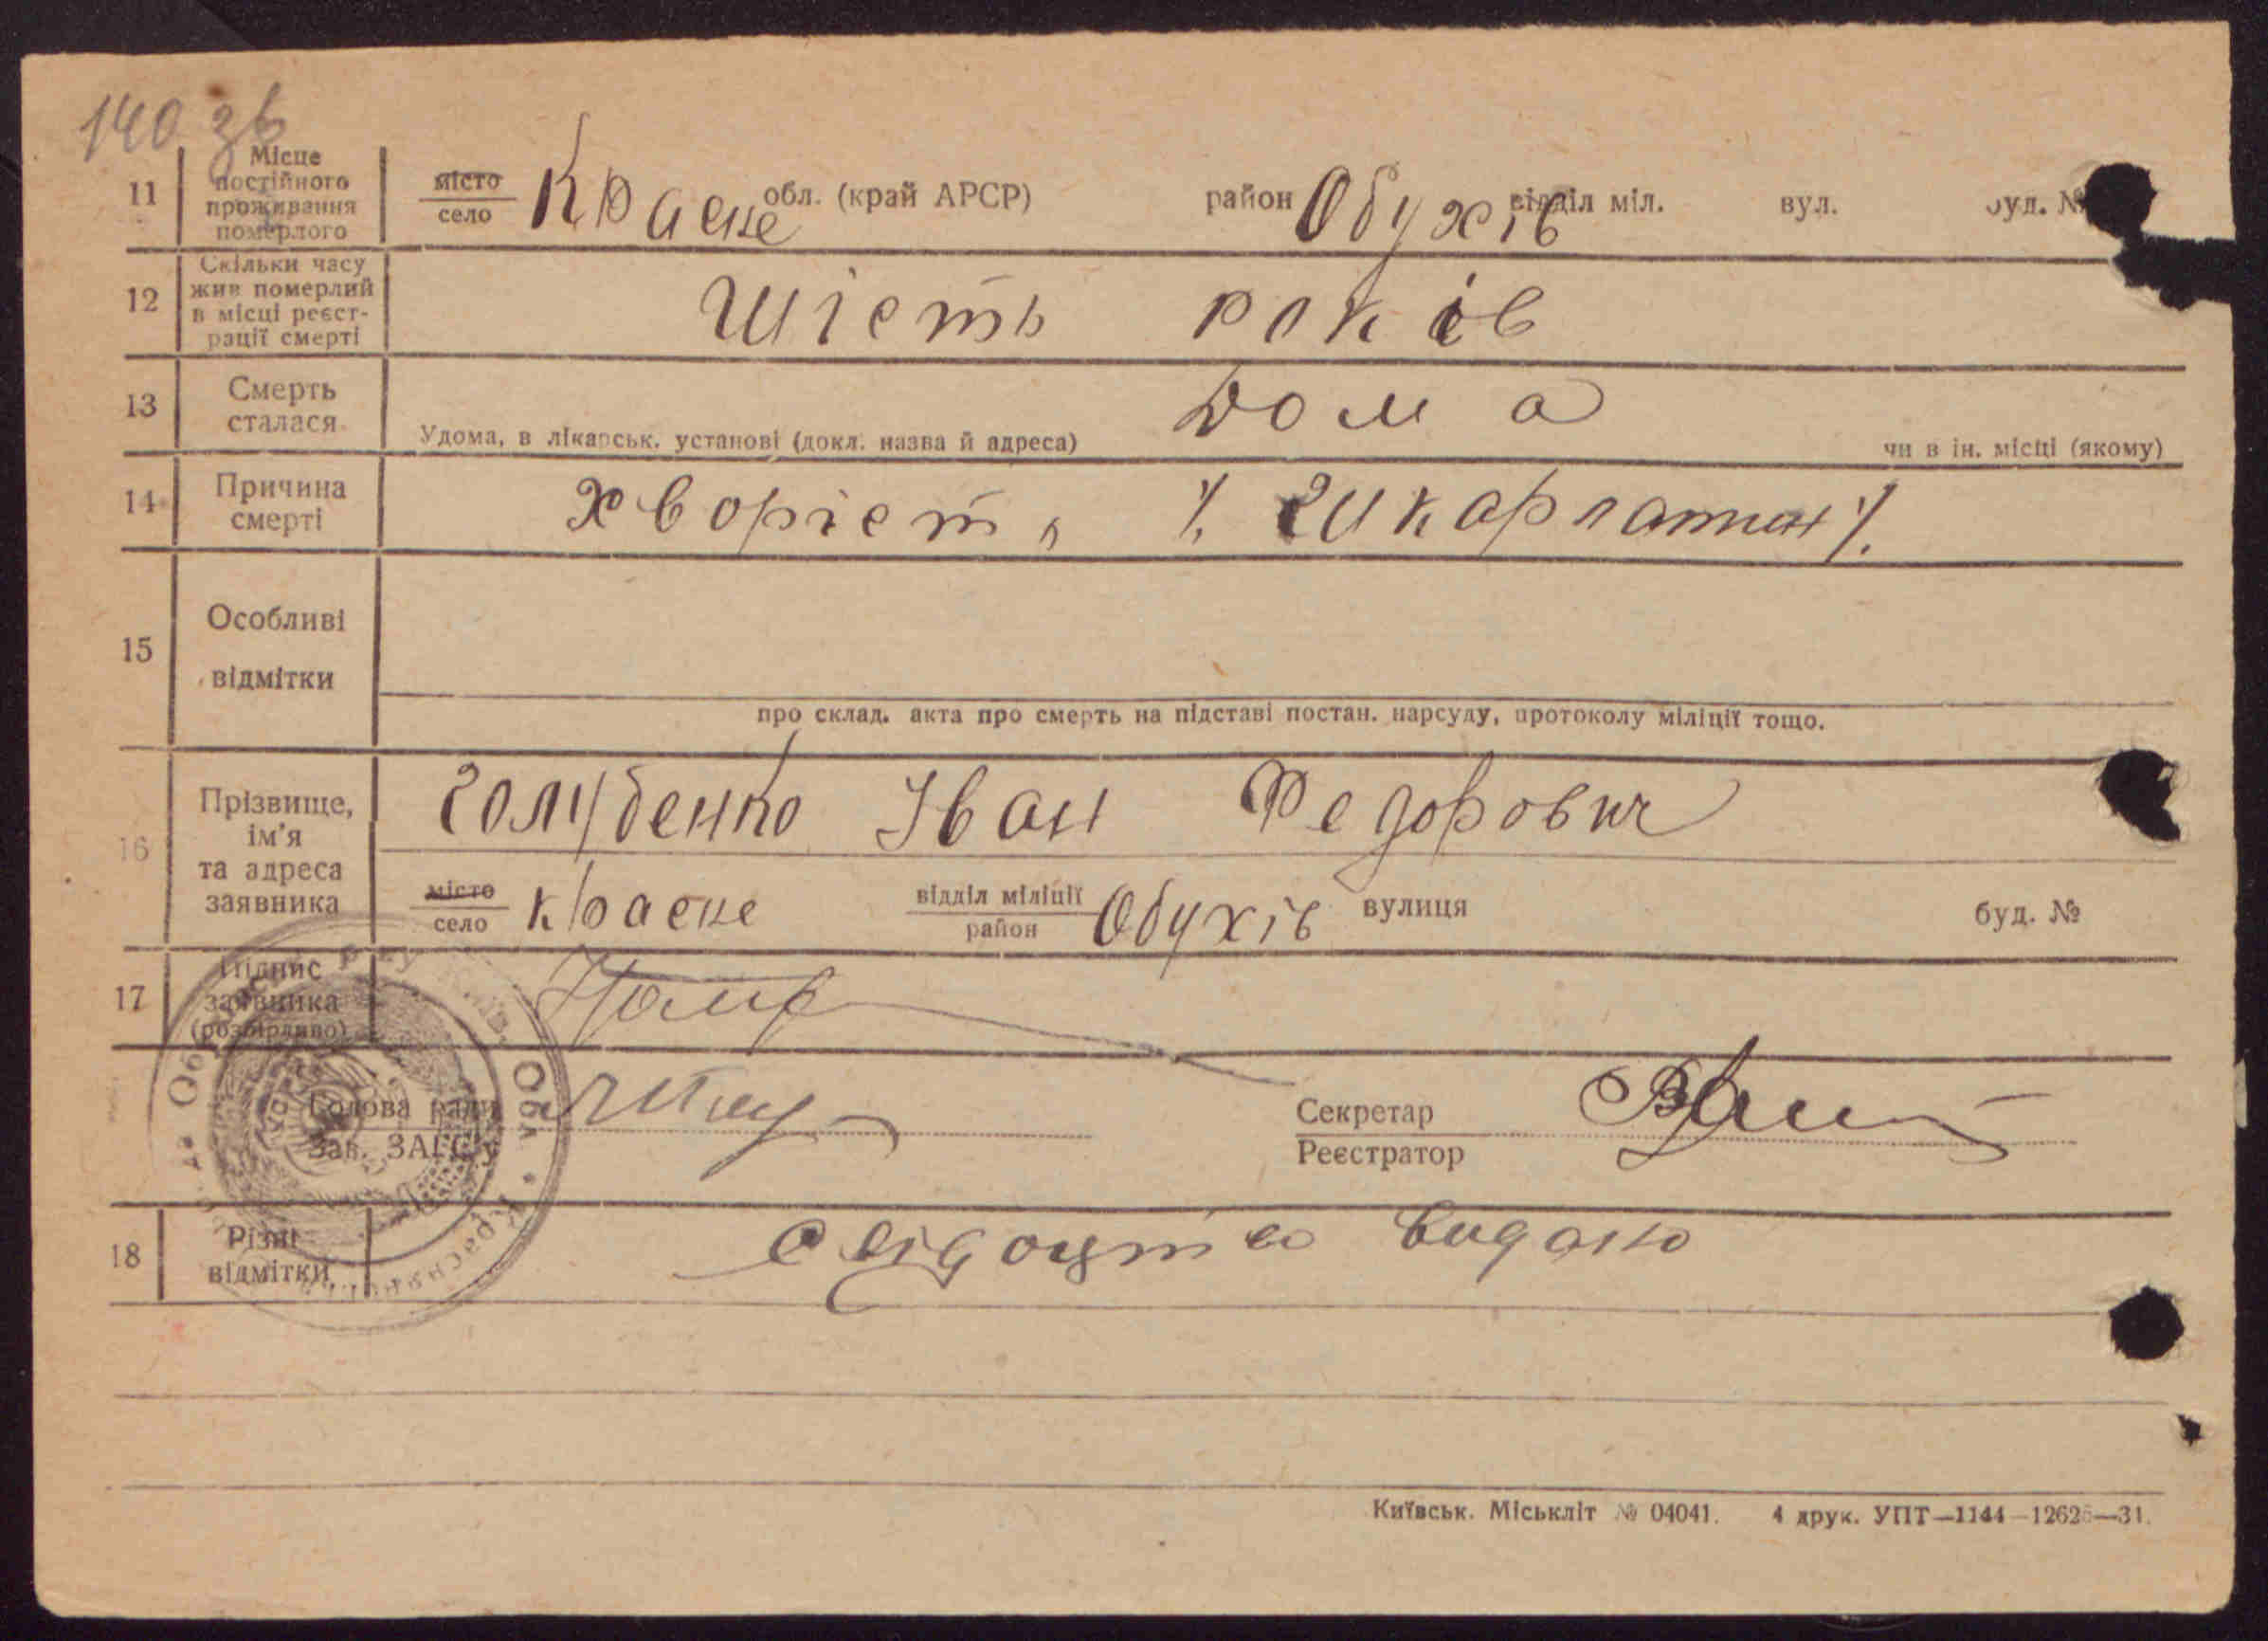 140 зв
11 Місце постійного проживання померлого місто село Красне обл. (край АРСР) район Обухів відділ міл. вул. буд. №
12 Скільки часу жив померлий в місці реєстрації смерті шість років
13 Смерть сталася дома
Удома, в лікарськ. установі (докл. назва й адреса) чи в ін. місці (якому)
14 Причина смерті хворість
15 Особливі відмітки
про склад. акта про смерть на підставі постан. нарсуду, протоколу міліції тощо.
16 Прізвище, ім'я та адреса заявника Голубенко Іван Федорович
місто село Красне відділ міліції район Обухів вулиця буд. №
17 Підпис заявника (розбірливо)
Голова ради
Зав. ЗАГС'у
Секретар
Реєстратор
18 Різні відмітки видано
Київськ. Міськліт № 04041. 4 друк. УПТ—1144